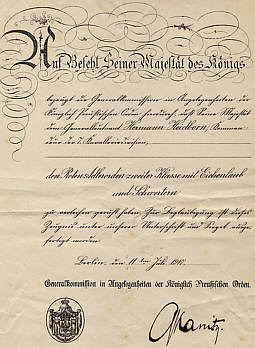 Auf Befehl Seiner Majestät des Königs
bezeugt die Generalkommission in Angelegenheiten der
Königlich Preußischen Orden hierdurch, daß Seine Majestät
dem Generalleutnant Hermann Heidborn,
den Roten Adlerorden zweiter Klasse mit Eichenlaub
und Schwertern
zu verleihen geruht haben. Zur Beglaubigung ist dieses
Zeugnis unter unserer Unterschrift und Siegel ausgefertigt worden.
Berlin, den 11ten Juli 1917.
Generalkommission in Angelegenheiten der Königlich Preussischen Orden.